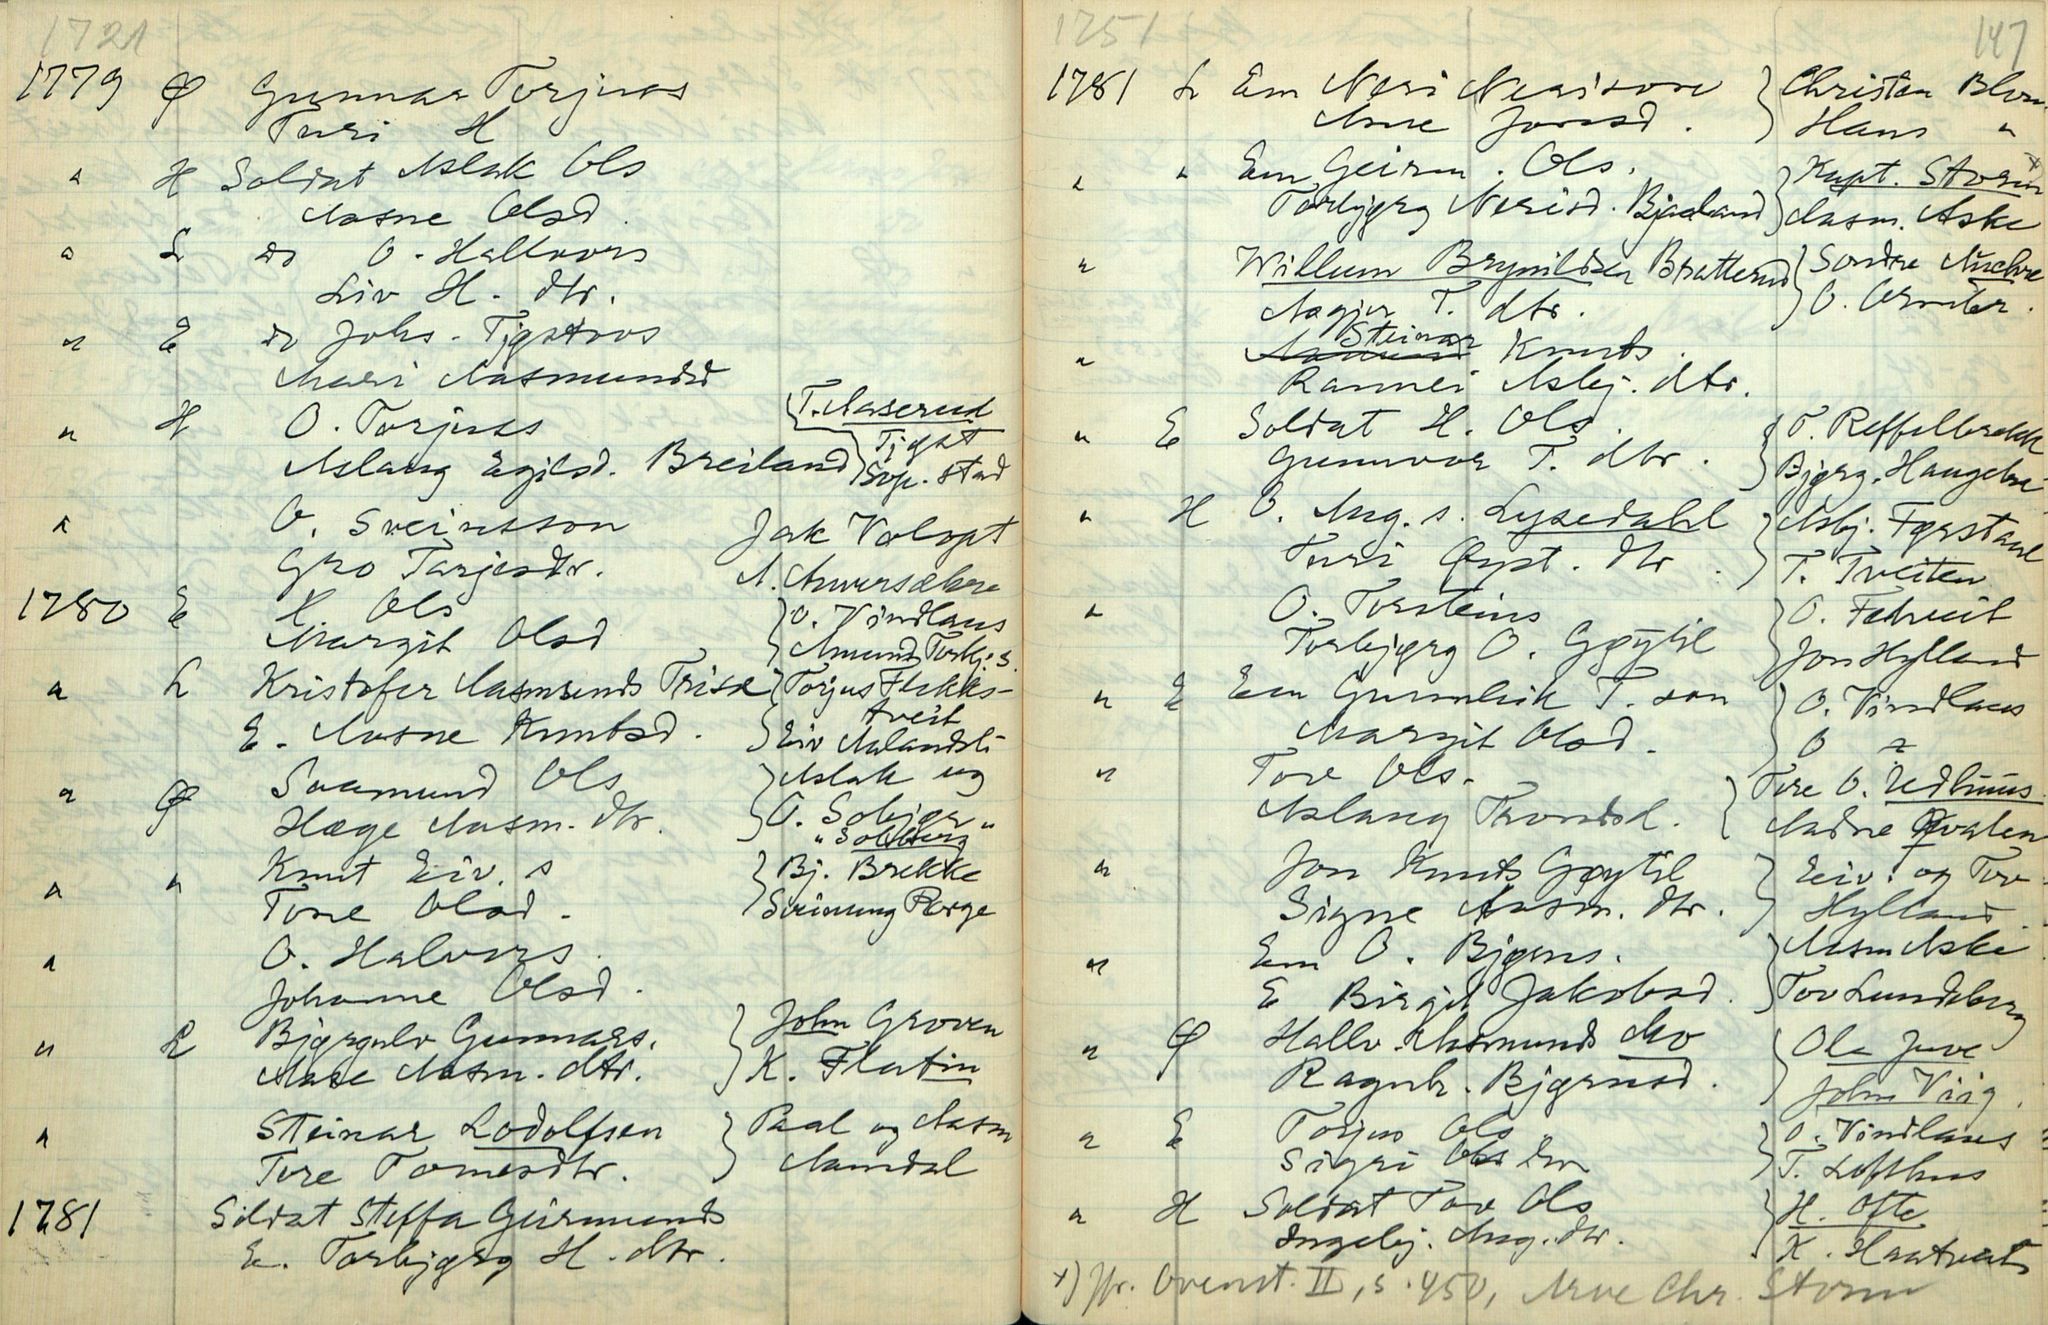 1721
1779 Ø Gunnar Torjus
Turi H
" H Soldat Aslak Ols
Aasne Olsd.
" L do O. Hallvors
Liv H. dtr.
" E do Johs. Tjøstvos
Mari Aasmundsd
" H O. Torjus { T. Aaserud
Aslaug Egilsd. Breiland } Tjøst
Svp. stad
" O. Sveinsson Jak Valopt
Gro Tarjesdtr. A.
1780 E K Ols } O. Vindlaus
Margit Olsd Amund Torbj. s.
" L Kristofer Aasmunds Trisæ } Torjus Flekks-
tveit
E. Aasne Knutsd. Eiv Aalandsli
" Ø Saamund Ols } Aslak og
Hæge Aasm. dtr. O. Solbjør "
" Solberg
" " Knut Eiv. s } Bj. Brekke
Tone Olsd. Sveinung Rorge
" O. Halvors.
Johanne Olsd.
" L Bjørgulv Gunnars. } John Groven
Aase Aasm. dtr. K. Flatin
" Steinar Lodolfsen } Paal og Aasm
Tore Tomesdtr. Aamdal
1781 Soldat Steffa Geirmunds
E. Torbjørg H. dtr.
1751 147
1781 L Em Neri Nerisone } Christen Blom
Anne Joresd. Hans "
" " Em Geirm. Ols. } Kapt. Storm x
Torbjørg Nerisd. Bjaaland Aasm. Aske
" Willum Brynildsen Bratterud } Sondre
Aagju T. dtr. O.
Steinar
" Aamund Knuts.
Rannei Asbj. dtr.
" E Soldat H. Ols. } T. Reffelbrekk
Gunnvor T. dtr. Bjørg. Haugebø
" H O. Aug. s. Lysedahl } Asbj. Førstaul
Turi Øyst. dtr. T. Tveiten
" O. Torsteins } O. Felveit
Torbjørg O. Gøytil Jon Hylland
" E Em Gunnleik T. son } O. Vindlaus
Margit Olsd. O "
" Tov Ols. } Tore O. Vedhuus
Aslaug Trondsd. Aadne Qvalen
" Jon Knuts Gøytil } Eiv. og Tov
Signe Aasm. dtr. Hylland
" Em O. Bjørns. } Aasm Aske
E Birgit Jakobsd. Tov Lundeberg
" Ø Hallv. Aasmunds Mo } Ole Juve
Ragnh. Bjørnsd. John Viig.
" E Torjus Ols } O. Vindlaus
Sigri Ols dtr T. Lofthus
" H Soldat Tov Ols } H. Ofte
Ingebj. Aug. dtr. K. Haatveit
x) jfr. Ovenst. II, s. 450, Arve Chr. Storm